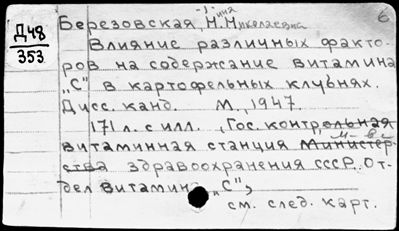 Д48
353
Березовская, Нина Николаевна
6
Влияние различных факто-
ров на содержание витамина
"С" в картофельных клубнях.
Дисс. канд. М., 1947.
171 л. с илл. (Гос. контрольная
витаминная станция М-ва
здравоохранения СССР. От-
дел витамина "С",
см. след. карт.